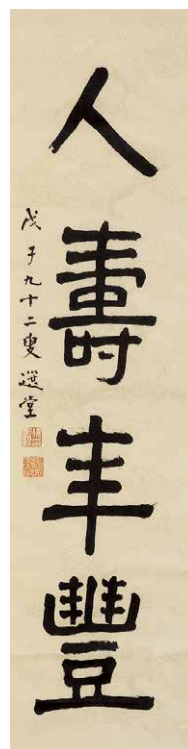 人壽年豐
戊子九十二叟選堂